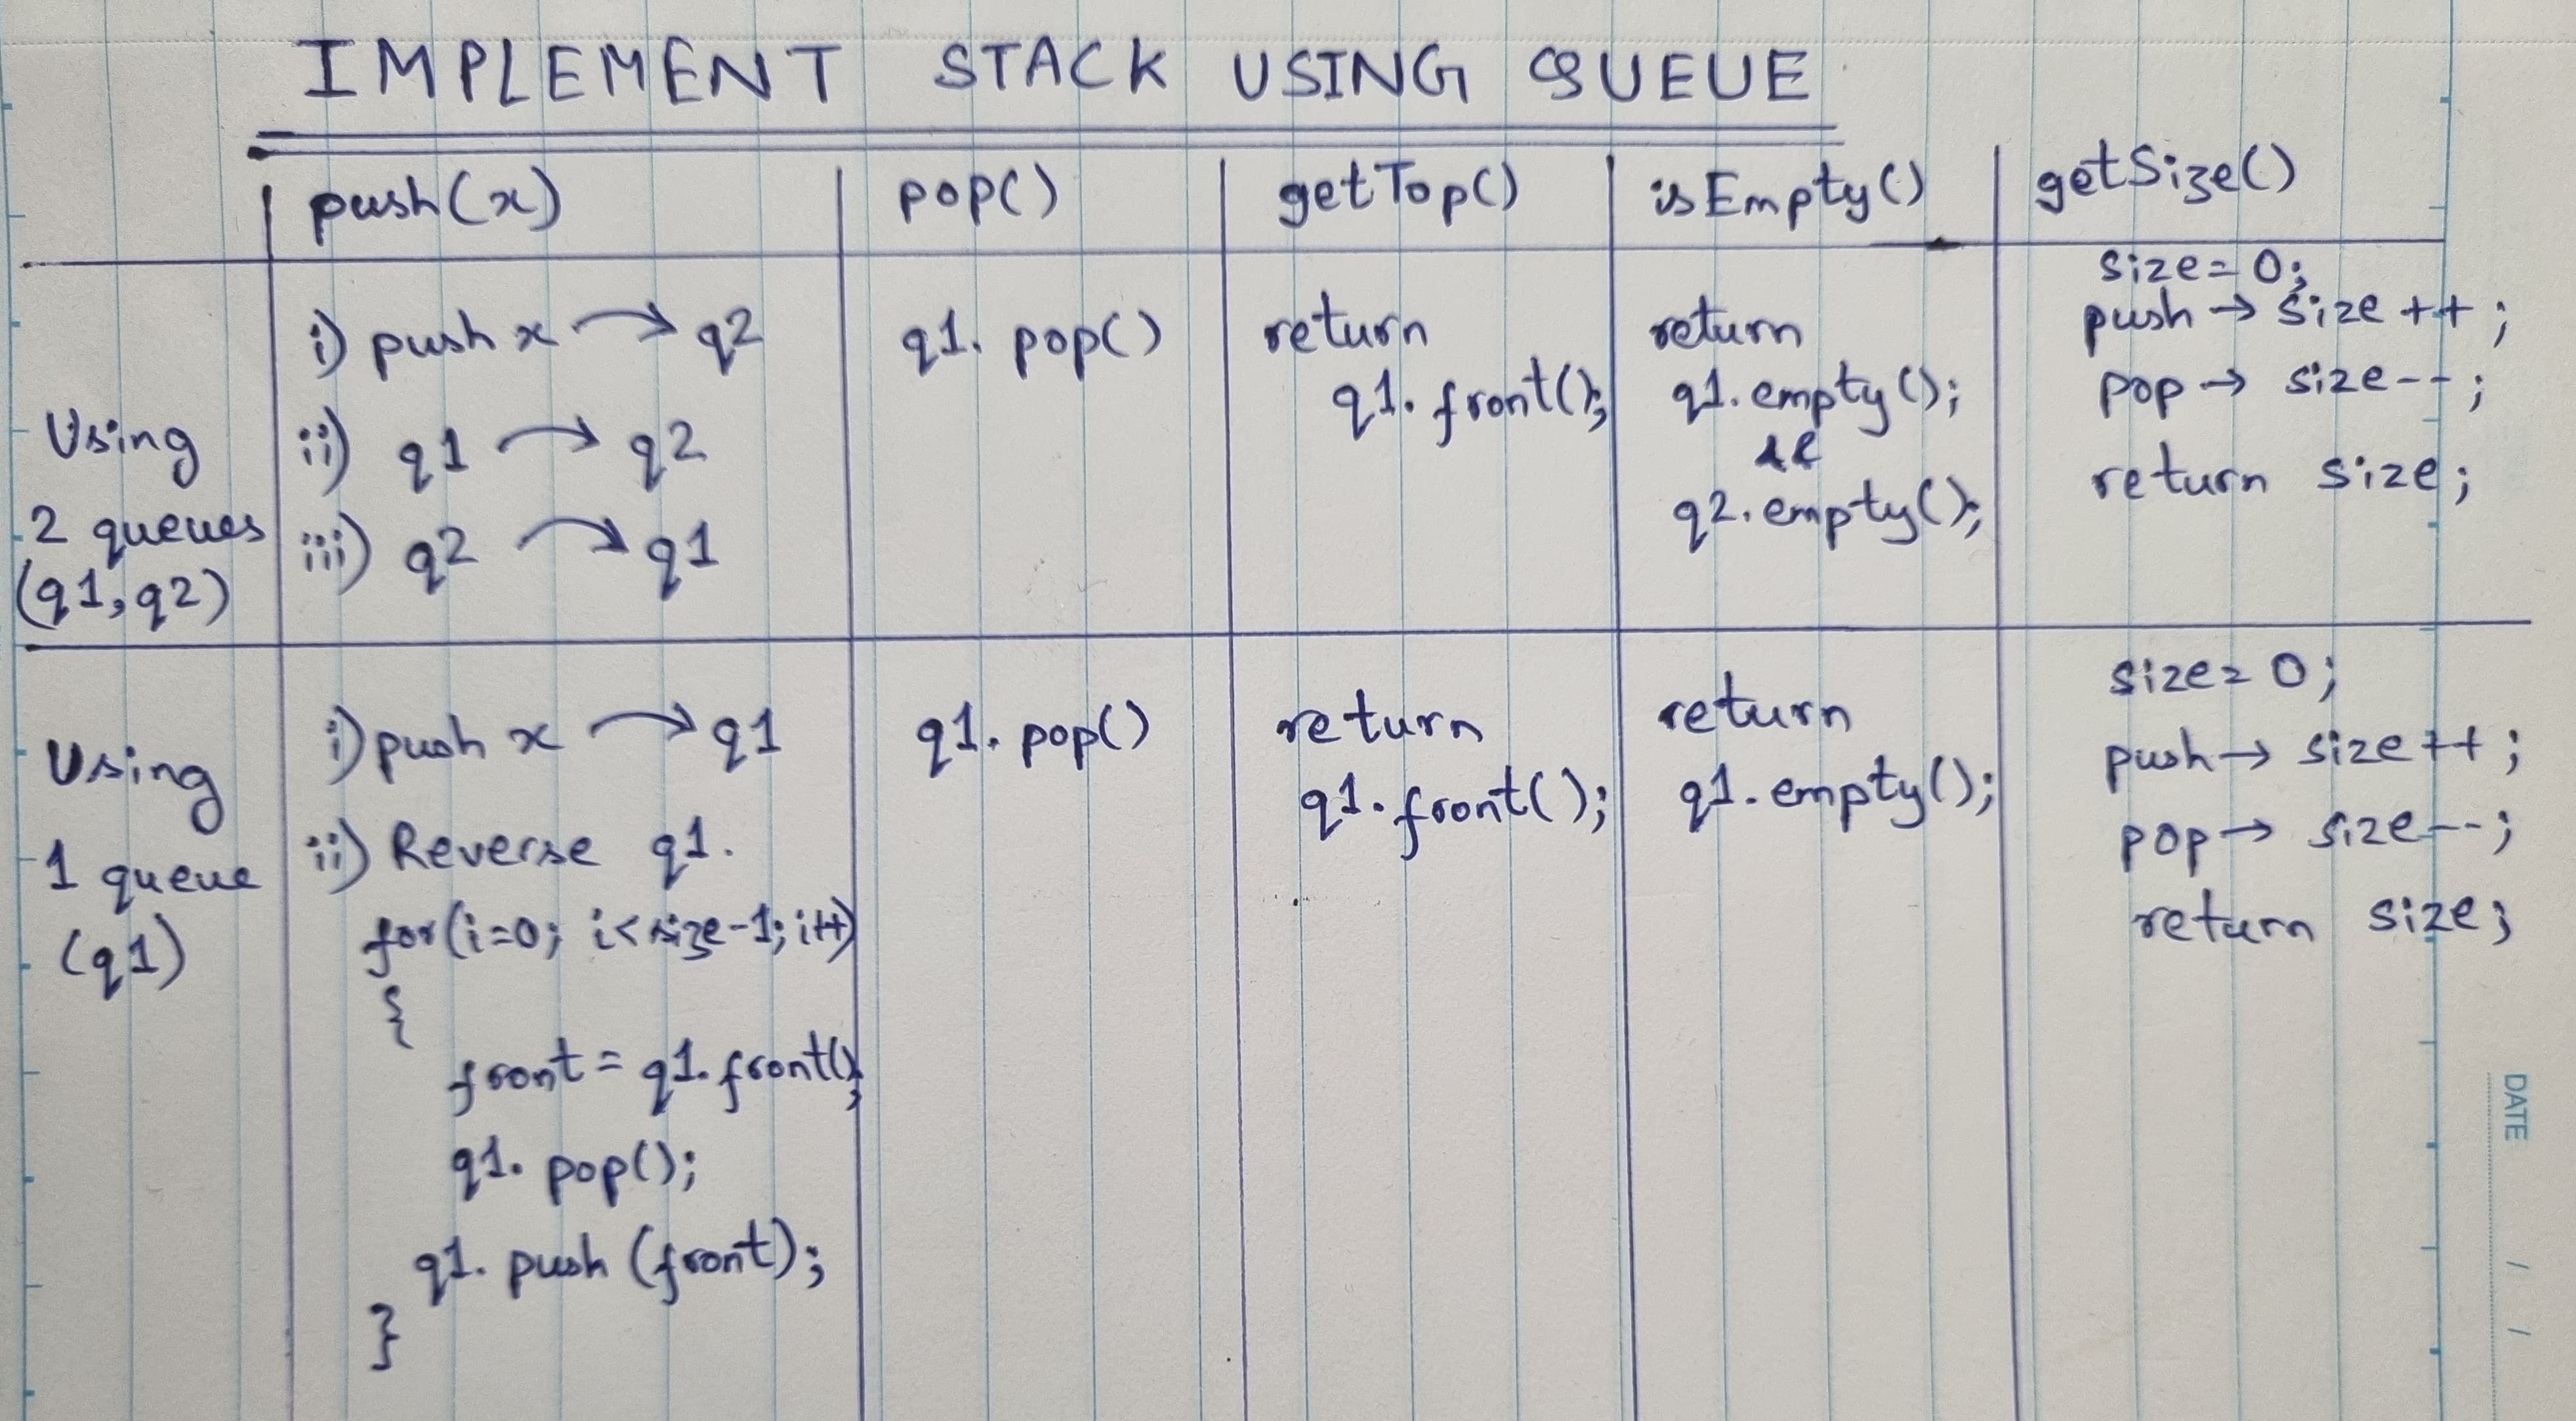 IMPLEMENT STACK USING QUEUE
push(x)
pop()
getTop()
isEmpty()
getSize()
Using
2 queues
(q1, q2)
i) push x → q2
ii) q1 → q2
iii) q2 → q1
q1. pop()
return
q1. front();
return
q1. empty();
q2. empty();
size = 0;
push → size ++ ;
pop → size -- ;
return size;
Using
1 queue
(q1)
i) push x → q1
ii) Reverse q1.
for(i=0; i<size-1; i++)
{
front = q1. front();
q1. pop();
q1. push (front);
}
q1. pop()
return
q1. front();
return
q1. empty();
size = 0;
push → size ++ ;
pop → size -- ;
return size;
DATE / /